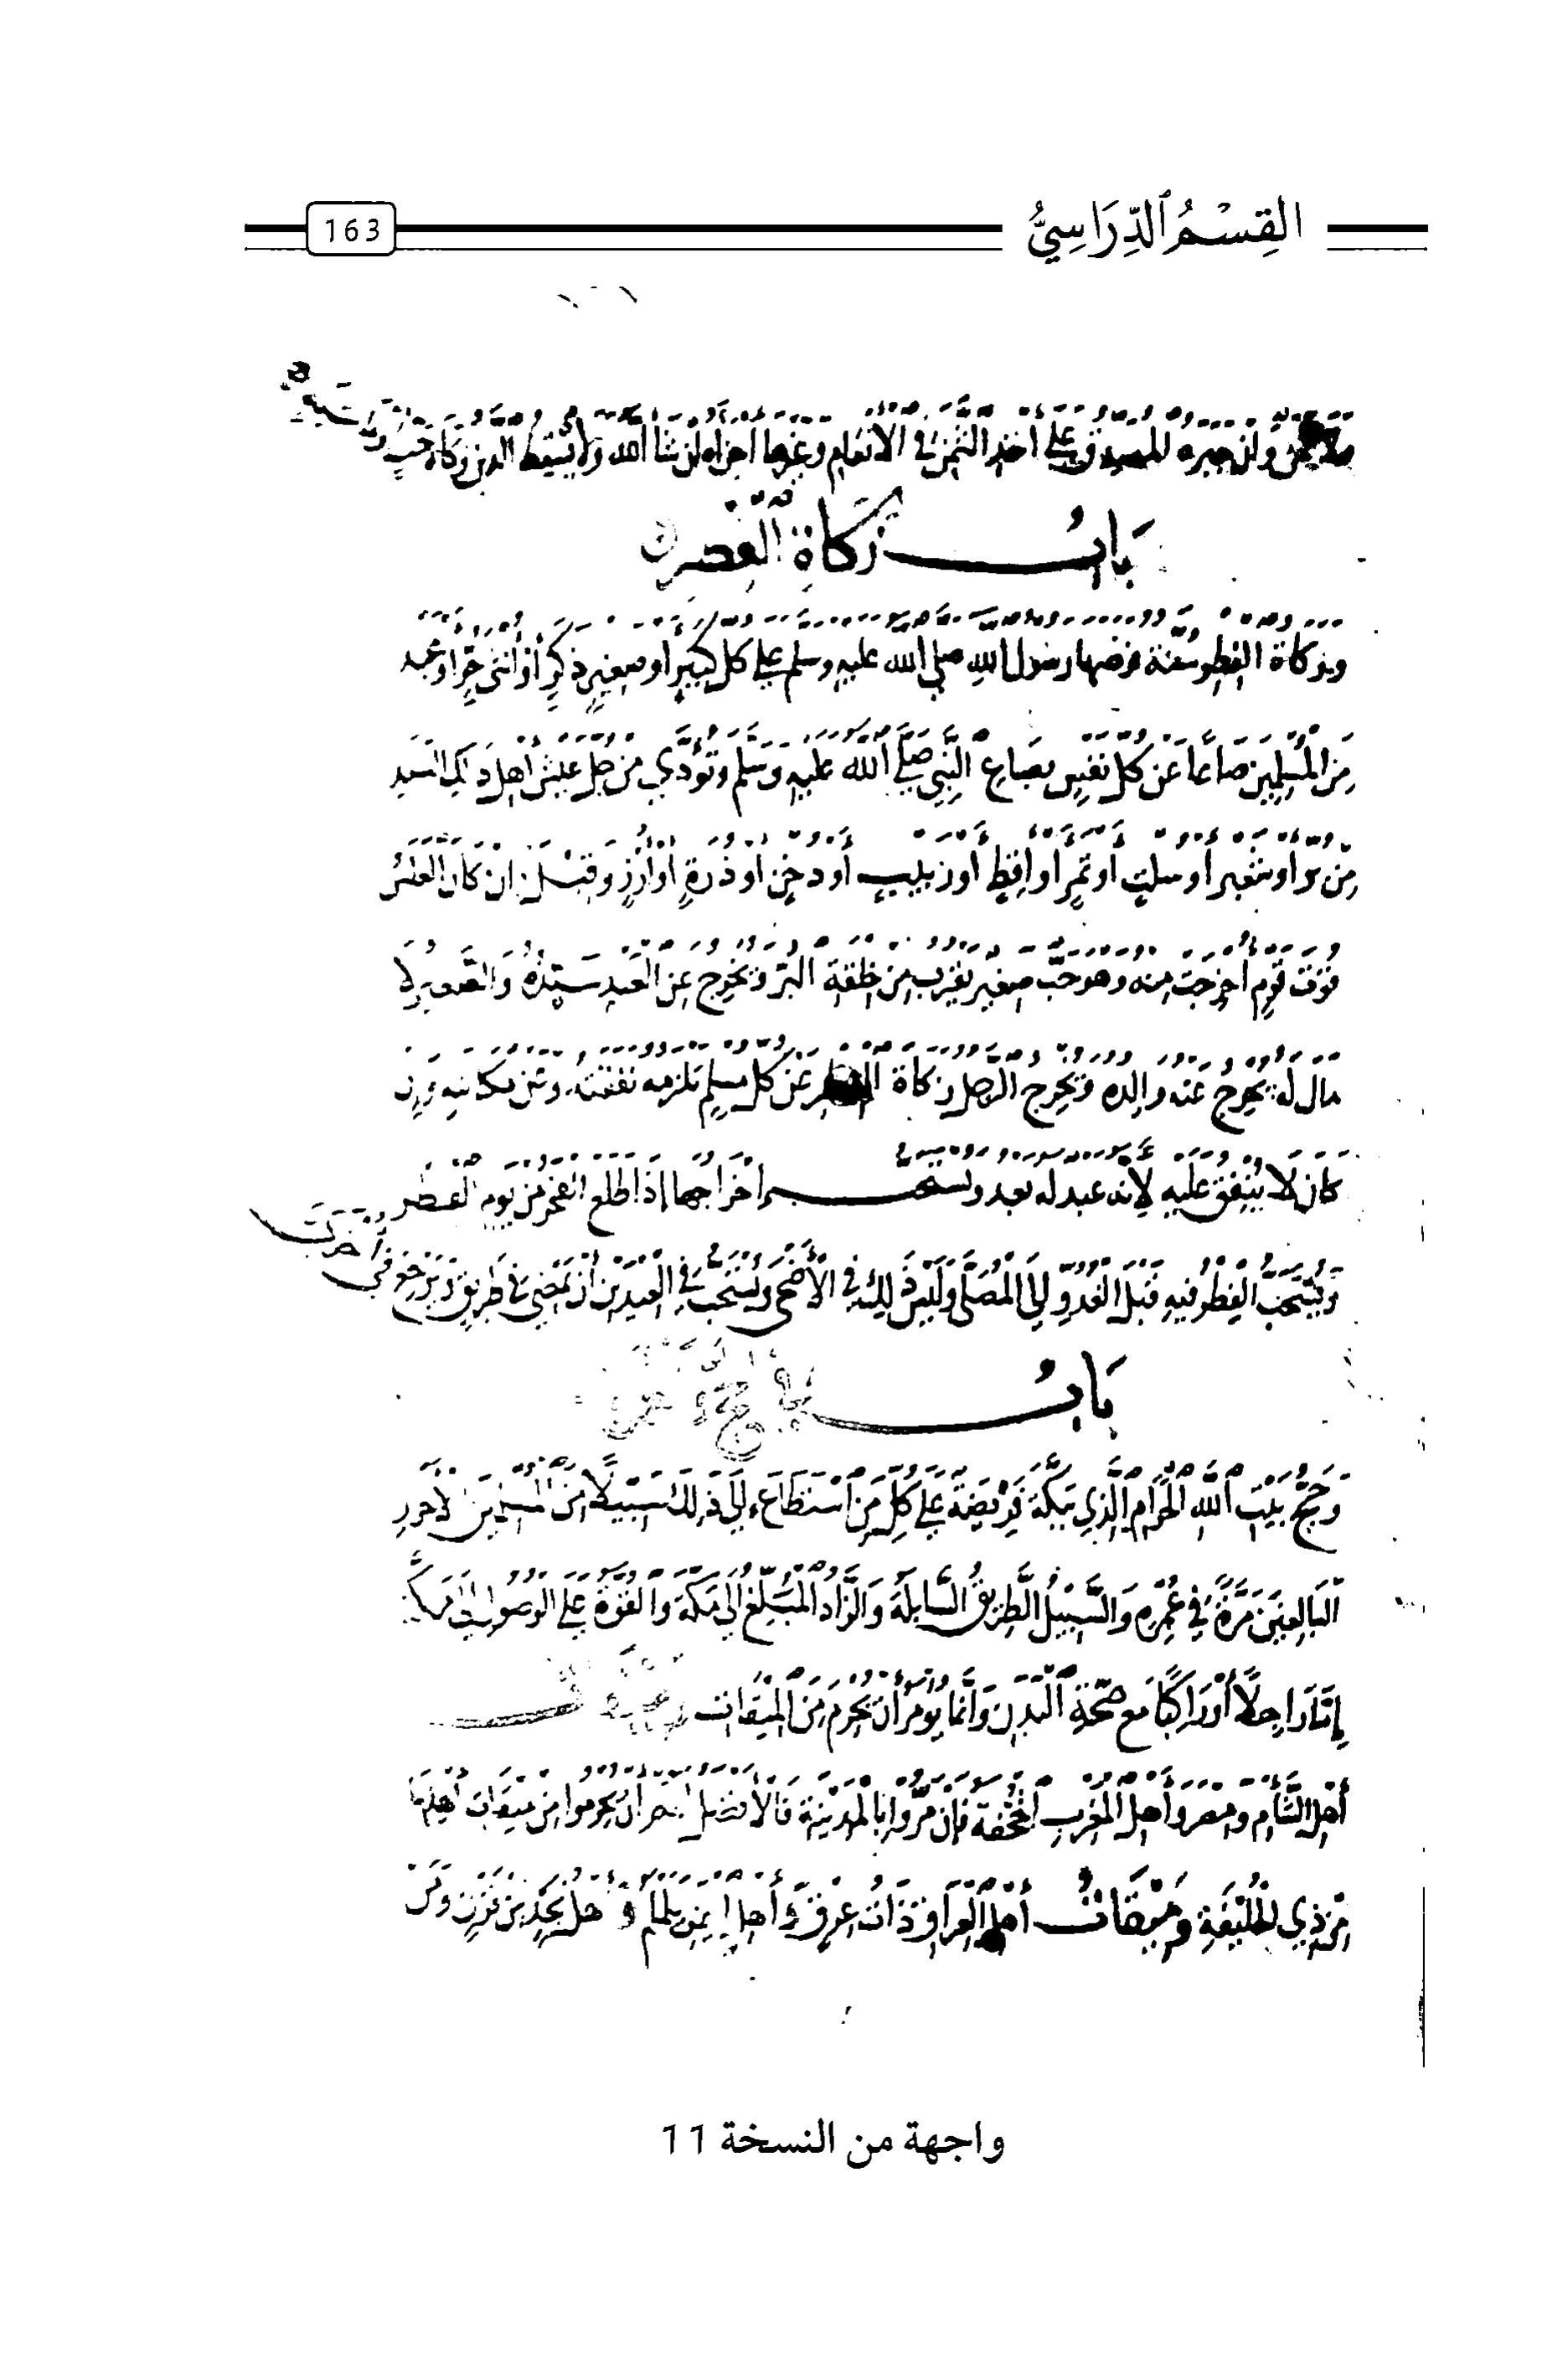 القِسْمُ ٱلدِّرَاسِيُّ
163
وإن جبره المصدق على أخذ الثمن في الأنعام وغيرها أجزأه إن شا الله ولا يسقط الدين زكاة حب
بابُ زكاة الفطر
وزكاة الفطر سنة فرضها رسول الله صلى الله عليه وسلم على كل كبير او صغير ذكر أو أنثى حر او عبد
مِن المسلمين صَاعًا عَن كل نفس بصَاع النَّبي صلى الله عليه وسلم وتؤدَّى من جل عيش أهل ذلك البلد
مِن بر أو شعير أو سلت أو تمر أو أقط أو زبيب أو دخن أو ذرة أو أرز وقيل إن كان العلس
قوت قوم أخرجت منه وهو حبّ صغير يقرب من خلقة البرّ ويخرج عن العبد سيّده والصّغير لا
مال له يخرج عنه والده ويخرج الرجل زكاة الفطر عن كل مسلم تلزمه نفقته وعن مكاتبه وإن
كان لا ينفق عليه لأنه عبد له بعد ويستحب إخراجها إذا طلع الفجر من يوم الفطر
ويستحبّ الفطر فيه قبل الغدوّ إلى المُصَلَّى وَلَيْسَ ذَلِكَ في الأضحى ويُستحبّ في العيدين أن يمضي في طريق ويرجع في أخرى
بَابُ
وَحَجُّ بَيْتِ اللهِ الحَرَام الَّذِي بِبَكَّةَ فَرِيضَةٌ عَلَى كُلِّ مَنِ اسْتَطَاعَ إلَى ذَلِكَ سَبِيلًا مِنَ المُسْلِمِينَ الأحرار
البَالِغِينَ مَرَّةً فِي عُمْرِهِ وَالسَّبِيلُ الطَّرِيقُ السَّابِلَةُ وَالزَّادُ المُبَلِّغُ إلى مَكَّةَ وَالقُوَّةُ عَلَى الوُصُولِ إلى مَكَّةَ
إِمَّا رَاجِلًا أَوْ رَاكِبًا مَع صحّةِ البَدَنِ وَإنَّمَا يُؤمَر أن يُحْرِمَ مِنَ المِيقَات
أهل الشَّام ومصر وأهل المغرب الجُحْفة فإن مرّوا بالمدينة فالأفضل لهم أن يحرموا من ميقات أهلها
مِن ذِي الحُلَيْفَةِ وَمِيقَاتُ أهل العراق ذَات عِرْقٍ وأهل اليمن يلملم وأهل نَجْد من قرن ومن
واجهة من النسخة 11